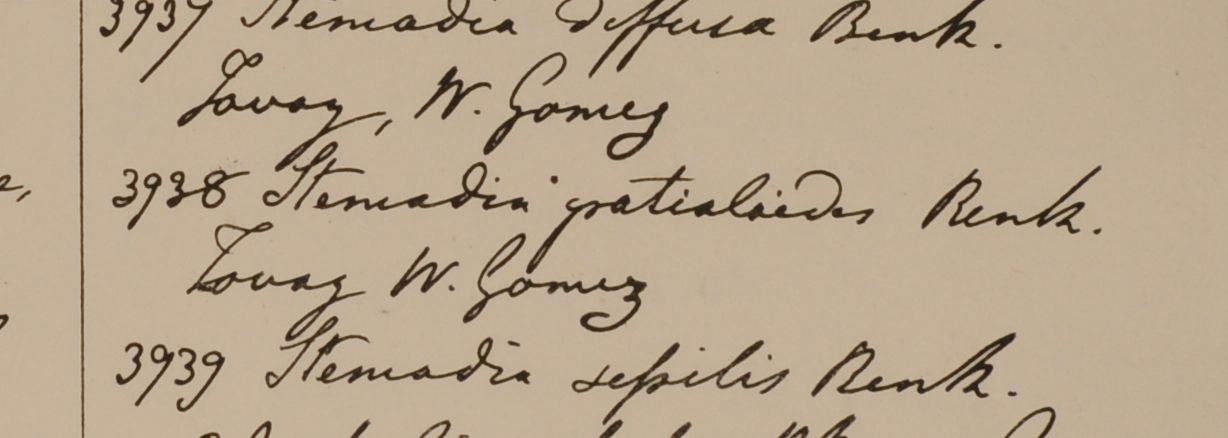 3937 Stemadia diffusa Benth.
Tovay, W. Gomez
3938 Stemadia gratialoides Benth.
Tovay W. Gomez
3939 Stemadia sessilis Benth.